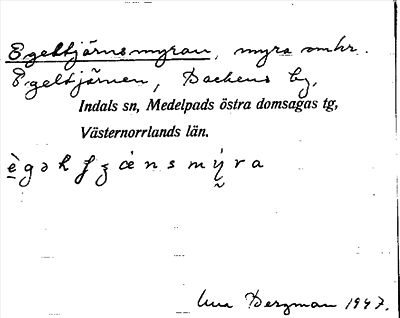 Egeltjärnsmyran, myra omkr.
Egeltjärnen, Backens by,
Indals sn, Medelpads östra domsagas tg,
Västernorrlands län.
Una Bergman 1947.